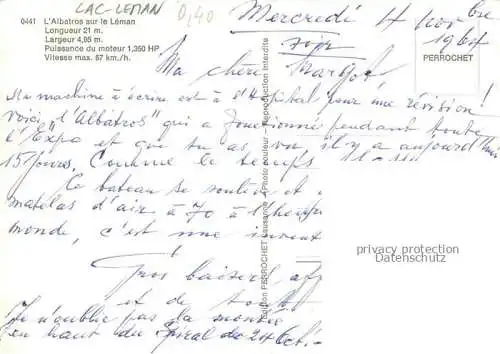 LAC-LEMAN
0,40
0441 L'Albatros sur le Léman
Longueur 21 m.
Largeur 4,85 m.
Puissance du moteur 1,350 HP
Vitesse max. 67 km./h.
Mercredi 4 novbre
1964
PERROCHET
Ma chère Margot
Ma machine à écrire est à l'Hôpital pour une révision!
Voici "l'Albatros" qui a fonctionné pendant toute
l'Expo et que tu as vu, il y a aujourd'hui
15 jours. Comme le temps
Ce bateau se soulève et
matelas d'air à 70 à l'heure
monde, c'est une
Gros baisers,
et de
Je n'oublie pas la montre
en haut du
Edition PERROCHET Lausanne - Photo couleur - Reproduction interdite
privacy protection
Datenschutz